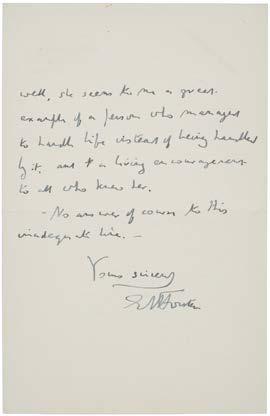 well, she seems to me a great
example of a person who managed
to handle life instead of being handled
by it, and a living encouragement
to all who knew her.
- No answer of course to this
inadequate line. -
Yours sincerely
EMForster